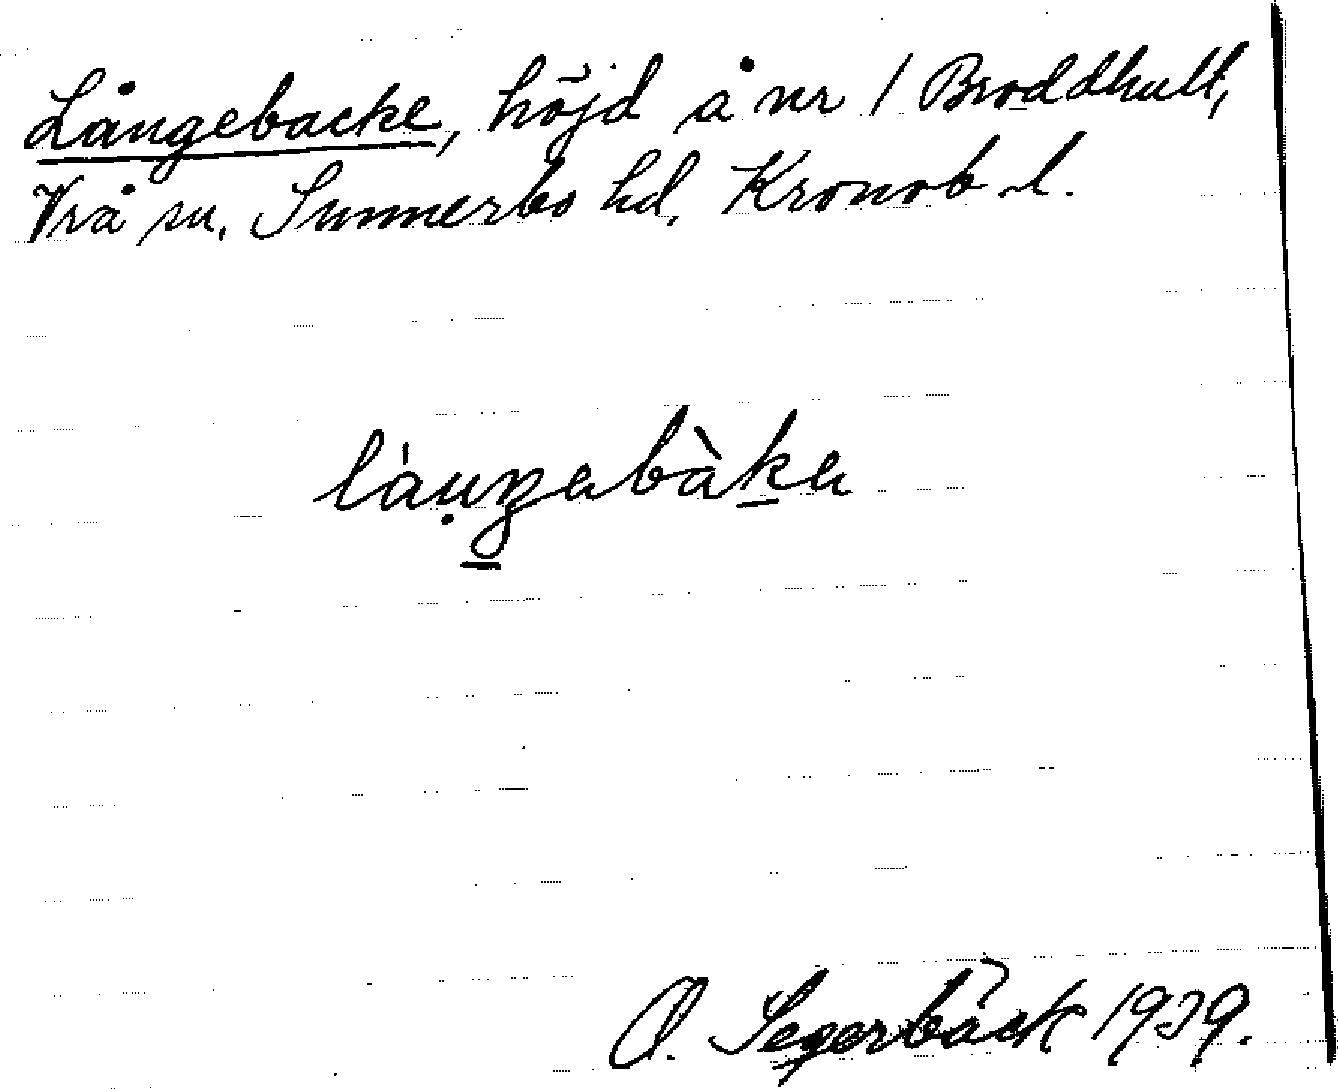 Långebacke, höjd å nr 1 Broddhult,
Vrå sn. Sunnerbo hd. Kronob. l.
O. Segerbäck 1939.